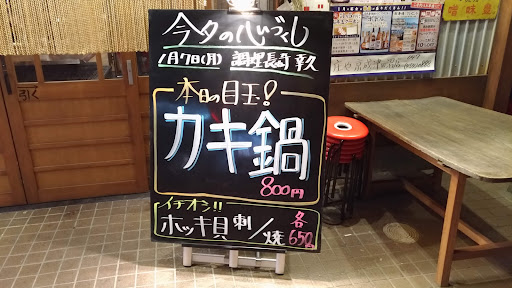 今夕の心づくし
1月7日(月) 調理長
本日の目玉!
カキ鍋
800円
イチオシ!!
ホッキ貝 刺/焼 各650
引く